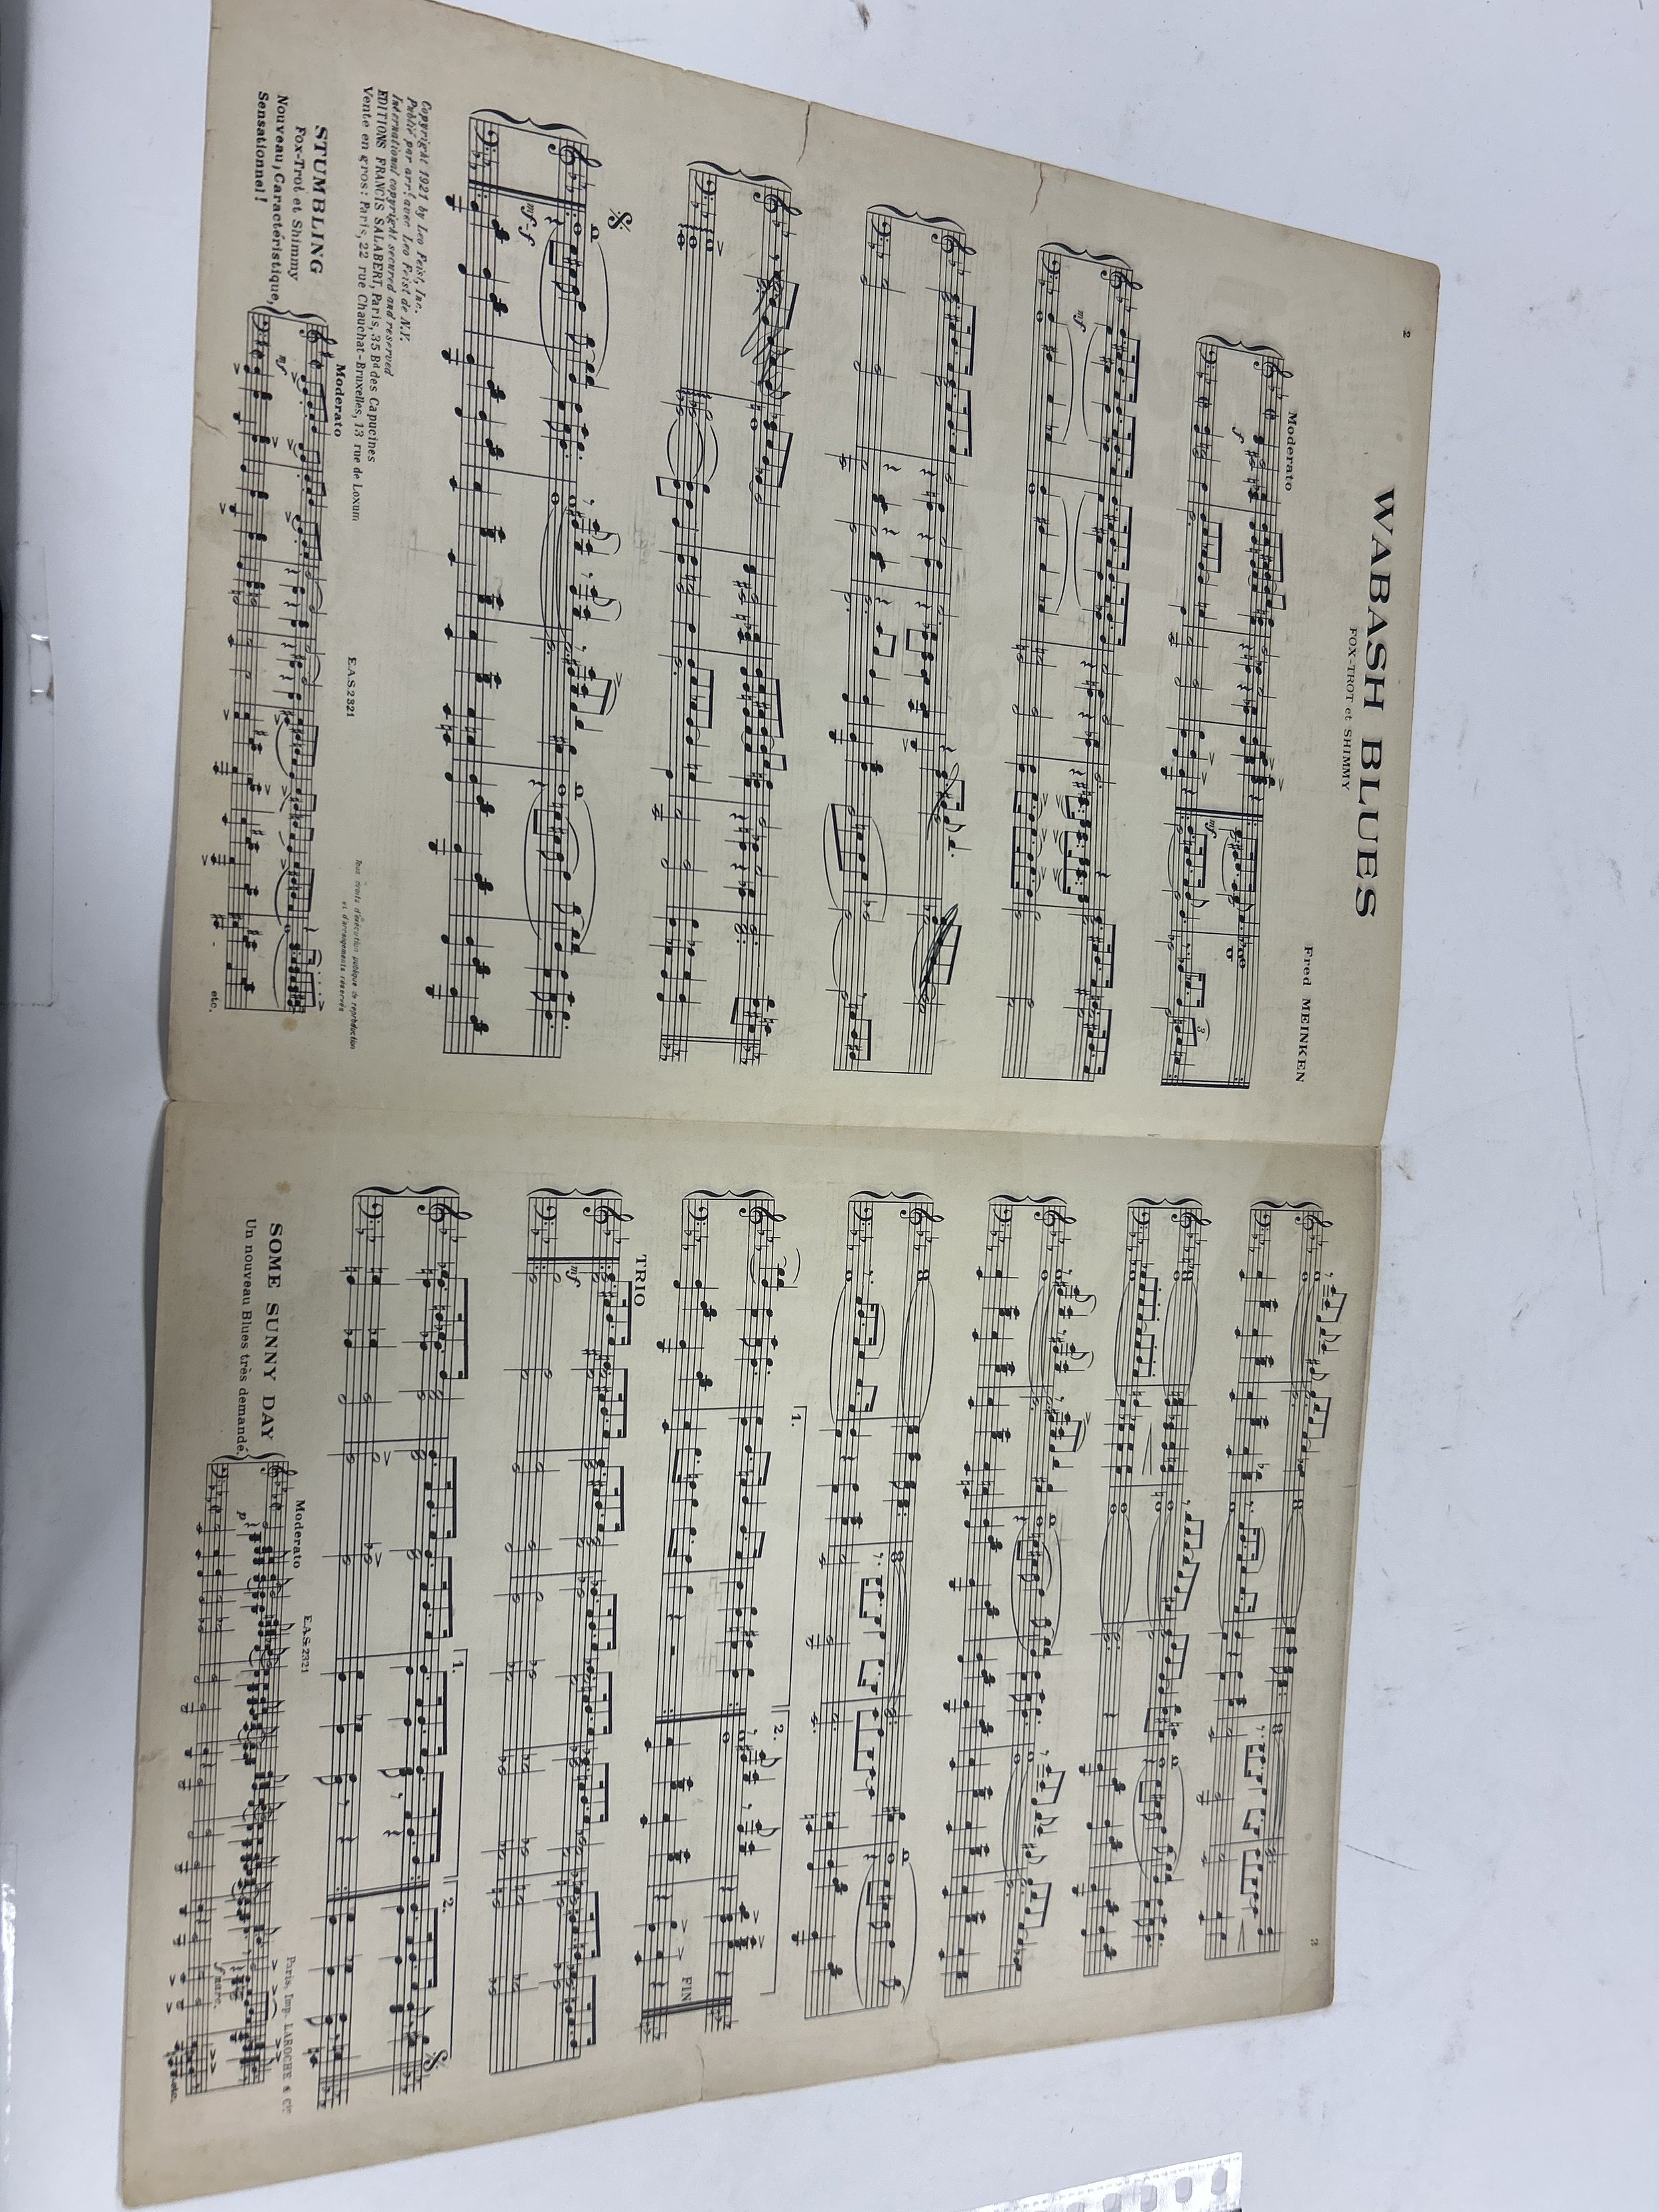 2
WABASH BLUES
FOX-TROT et SHIMMY
Fred MEINKEN
Moderato
f
mf
3
mf
mf-f
Copyright 1921 by Leo Feist, Inc.
Publié par arr! avec Leo Feist de N.Y.
International copyright secured and reserved
EDITIONS FRANCIS SALABERT, Paris, 35 Bd des Capucines
Vente en gros: Paris, 22 rue Chauchat-Bruxelles, 13 rue de Loxum
E.A.S 2321
Tous droits d'exécution publique de reproduction
et d'arrangements réservés
STUMBLING
Fox-Trot et Shimmy
Nouveau, Caractéristique,
Sensationnel!
Moderato
mf
etc.
3
1.
2.
FIN
TRIO
mf
1.
2.
E.A.S. 2321
Paris, Imp. LAROCHE & Cie
SOME SUNNY DAY
Un nouveau Blues très demandé.
Moderato
p
etc.